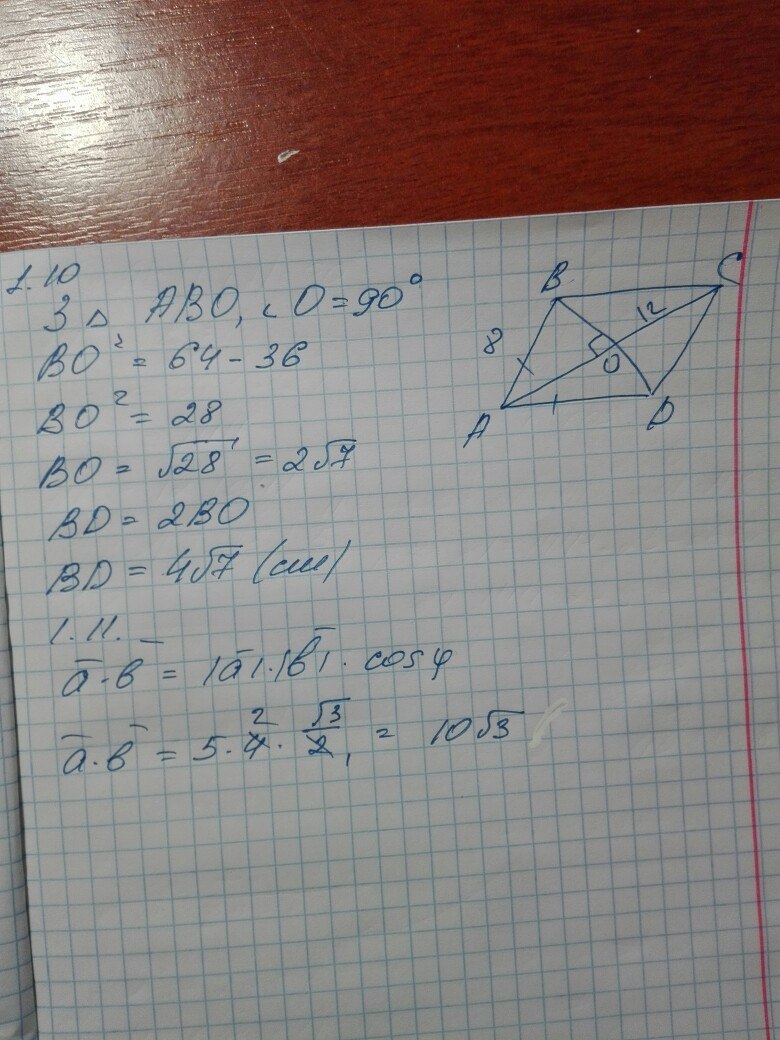 1.10
З △ ABO, ∠O = 90°
BO² = 64 - 36
BO² = 28
BO = √28 = 2√7
BD = 2BO
BD = 4√7 (см)
B
C
12
8
O
A
D
1.11.
a̅·b̅ = |a̅|·|b̅|·cosφ
a̅·b̅ = 5·4̸²·√3/2̸₁ = 10√3